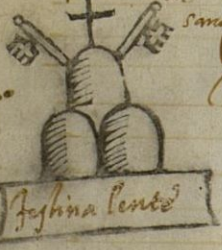 sanc
festina lente